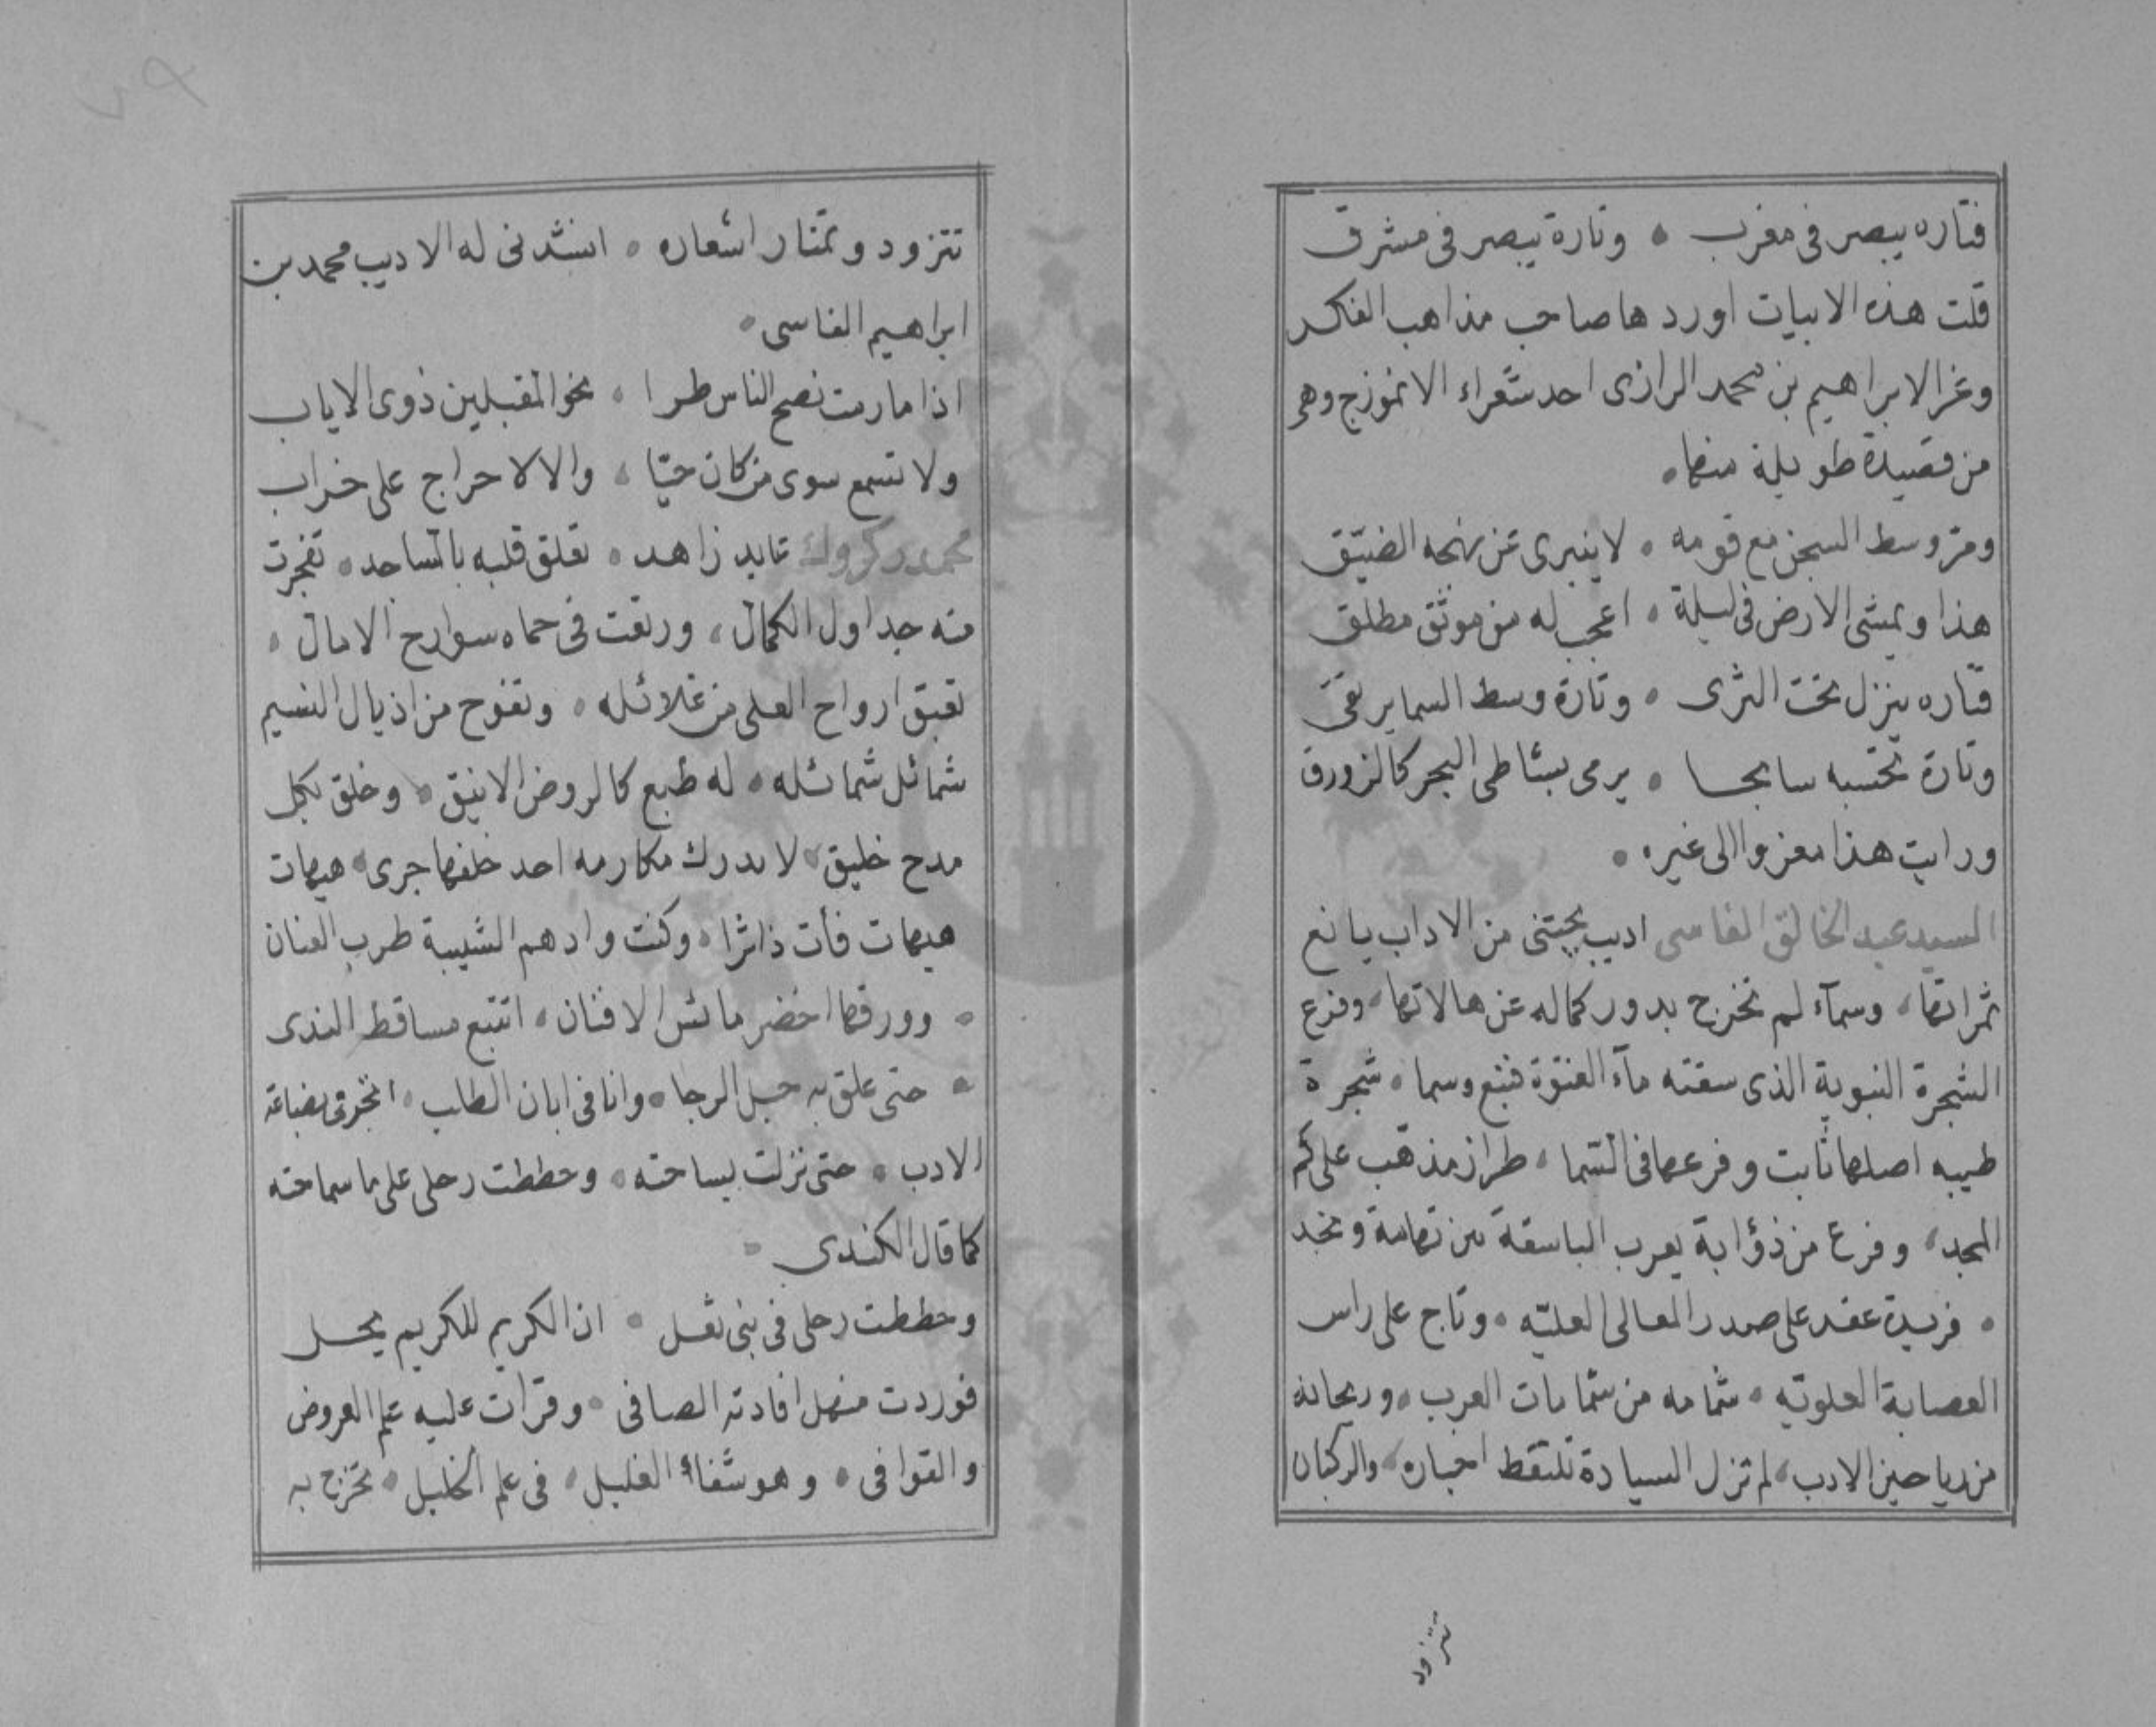 فتاره يبصر في مغرب • وتارة يبصر في مشرق
قلت هذه الابيات اوردها صاحب مذاهب الفكر
وعزالابراهيم بن محمد الرازى احد شعراء الانموزج وهى
من قصيدة طويلة منها•
ومر وسط السجن مع قومه • لا ينبرى عن نهجه الضيق
هذا ويمشى الارض فى ليلة • اعجب له من موثق مطلق
فتاره ينزل تحت الثرى • وتارة وسط السما يرتقى
وتارة تحتسبه سابحا • يرمى بشاطى البحر كالزورق
ورايت هذا معزوا الى غيره •
السيد عبد الخالق الفاسى اديب يجتنى من الاداب يانع
ثمراتها، وسمآء لم تخرج بدور كماله عن هالاتها، وفرع
الشجرة النبوية الذى سقته مآء الفتوة فنبع وسما • شجرة
طيبه اصلها ثابت وفرعها فى السما • طراز مذهب على كم
المجد، وفرع من ذؤابة يعرب الباسقة من تهامة ونجد
• فريدة عقد على صدر المعالى العليه • وتاج على راس
العصابة العلويه • شمامه من شمامات العرب • وريحانة
من رياحين الادب، لم تزل السيادة تلتقط اخباره، والركبان
تتزود
تتزود وتمتار اشعاره • انشدنى له الاديب محمد بن
ابراهيم الفاسى•
اذا مارمت نصح الناس طرا • نحو المقبلين ذوى الاياب
ولا تسمع سوى من كان حيا • والا لا حراج على خراب
محمد ركروك عابد زاهد • تعلق قلبه بالمساجد • تفجرت
منه جداول الكمال، ورتعت فى حماه سوارح الامال •
تعبق ارواح العلى من غلائله • وتفوح من اذيال النسيم
شمائل شمائله • له طبع كالروض الانيق • وخلق بكل
مدح خليق • لا يدرك مكارمه احد خلفها جرى • هيهات
هيهات فأت ذاثرا • وكنت وادهم الشيبة طرب العنان
• وورقها اخضر مائس الافنان • اتتبع مساقط الندى
• حتى علق به حبل الرجا • وانا فى ابان الطلب • اتجر فى بضاعة
الادب • حتى نزلت بساحته • وحططت رحلى على ما سماحته
كما قال الكندى •
وحططت رحلى فى بنى ثعل • ان الكريم للكريم يحل
فوردت منهل افادته الصافى • وقرات عليه علم العروض
والقوافى • وهو شفاء الغليل، فى علم الخليل • تخرج به